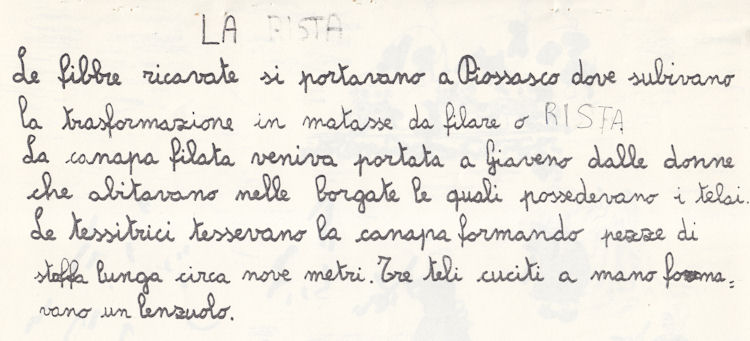 LA RISTA
Le fibbre ricavate si portavano a Piossasco dove subivano
la trasformazione in matasse da filare o RISTA
La canapa filata veniva portata a Giaveno dalle donne
che abitavano nelle borgate le quali possedevano i telai.
Le tessitrici tessevano la canapa formando pezze di
stoffa lunga circa nove metri. Tre teli cuciti a mano forma=
vano un lenzuolo.